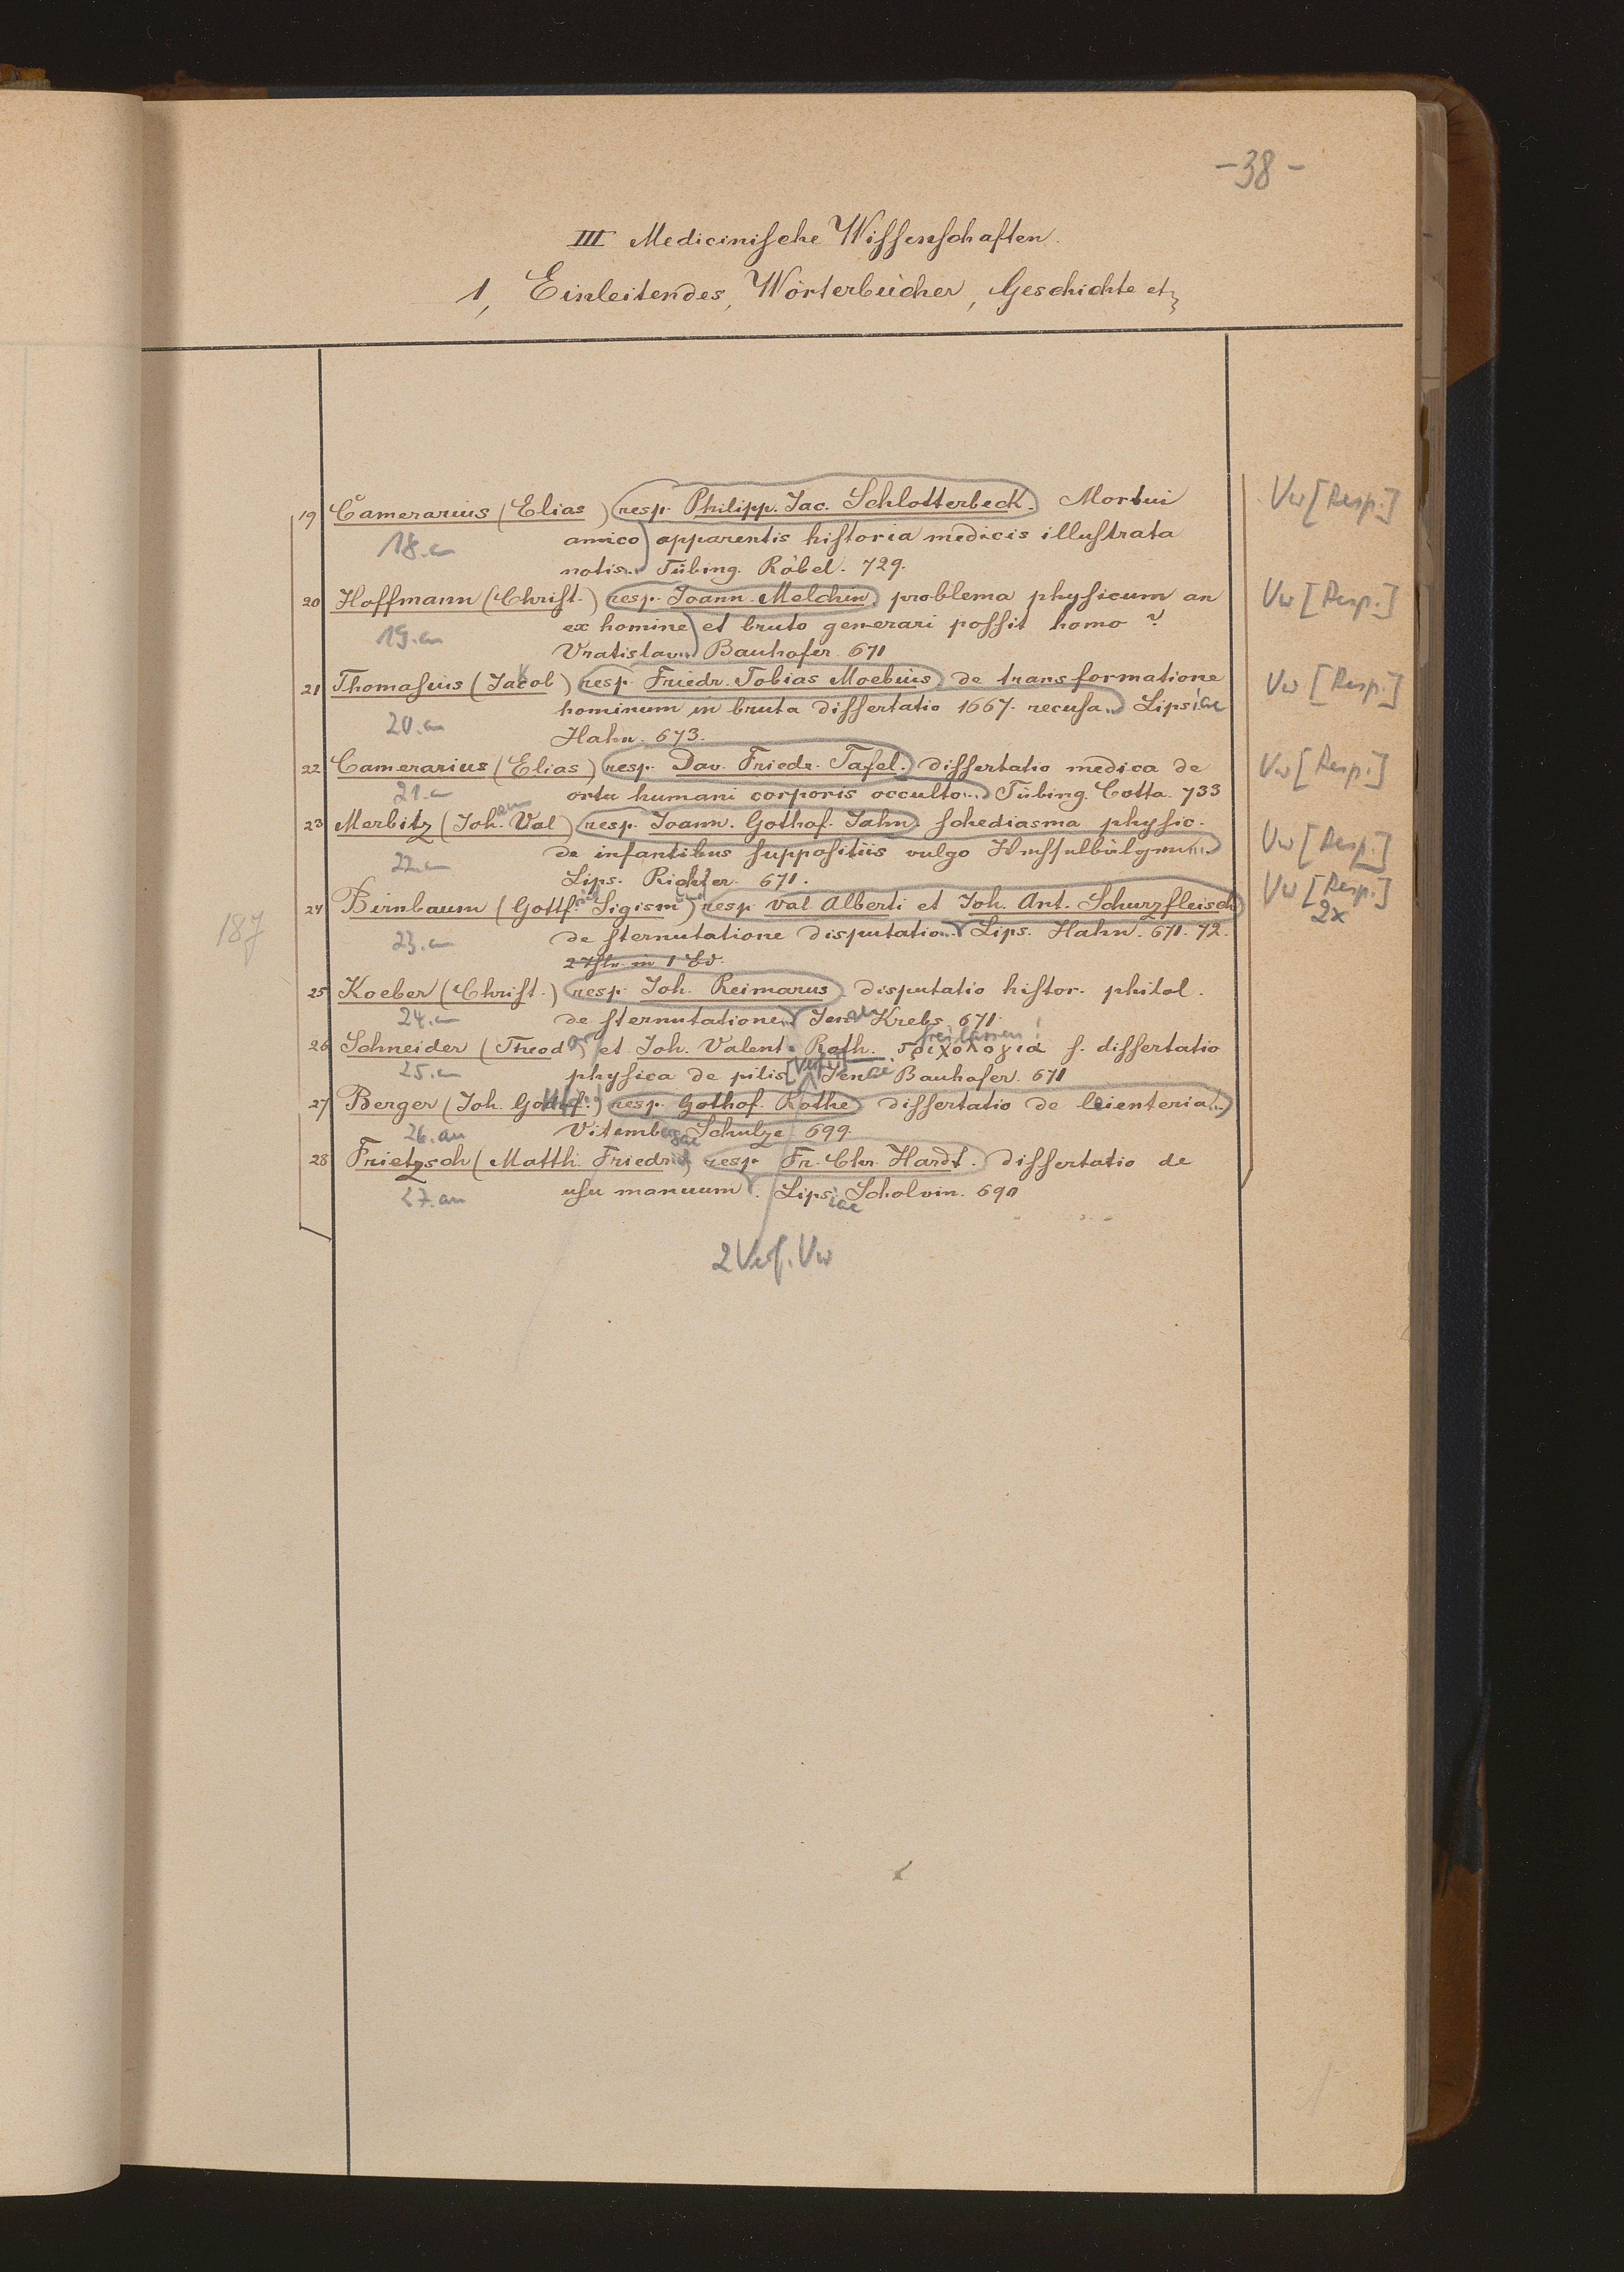 -38-
III Medicinische Wissenschaften.
1, Einleitendes, Wörterbücher, Geschichte etz
19 Camerarius (Elias) resp. Philipp. Jac. Schlotterbeck. Mortui Vw [Resp.]
18. an amico apparentis historia medicis illustrata
notis... Tübing. Röbel. 729.
20 Hoffmann (Christ.) resp. Joann. Melchin. problema physicum an Vw [Resp.]
19. an ex homine et bruto generari possit homo?
Vratislav... Bauhofer. 671
21 Thomasius (Jacob) resp. Friedr. Tobias Moebius de transformatione Vw [Resp.]
20. an hominum in bruta dissertatio 1667. recusa... Lipsiae
Hahn. 673.
22 Camerarius (Elias) resp. Dav. Friedr. Tafel. dissertatio medica de Vw [Resp.]
21. an ortu humani corporis occulto... Tübing. Cotta. 733
23 Merbitz (Johann Val) resp. Joann. Gothof. Jahn. schediasma physic. Vw [Resp.]
22. an de infantibus suppositiis vulgo Wechselbälgen...
Lips. Richter. 671.
187 24 Birnbaum (Gottf. Sigism) resp. Val Alberti et Joh. Ant. Schurzfleisch Vw [Resp.] 2x
23. an de sternutatione disputatio... Lips. Hahn. 671. 72.
2 Thle. in 1 Bd.
25 Koeber (Christ.) resp. Joh. Reimarus. disputatio histor. philol.
24. an de sternutatione... Jenae Krebs 671.
freilassen!
26 Schneider (Theodor) et Joh. Valent. Roth. τριχολογια s. dissertatio
25. an physica de pilis [Verf.] Jenae Bauhofer. 671
27 Berger (Joh. Gothof.) resp. Gothof. Rothe dissertatio de leienteria...
26. an Vitembergae Schulze 699.
28 Frietzsch (Matth. Friedrich) resp. Fr. Chr. Hardt. dissertatio de
27. an usu manuum. Lipsiae Scholvin. 690
2 Verf. Vw